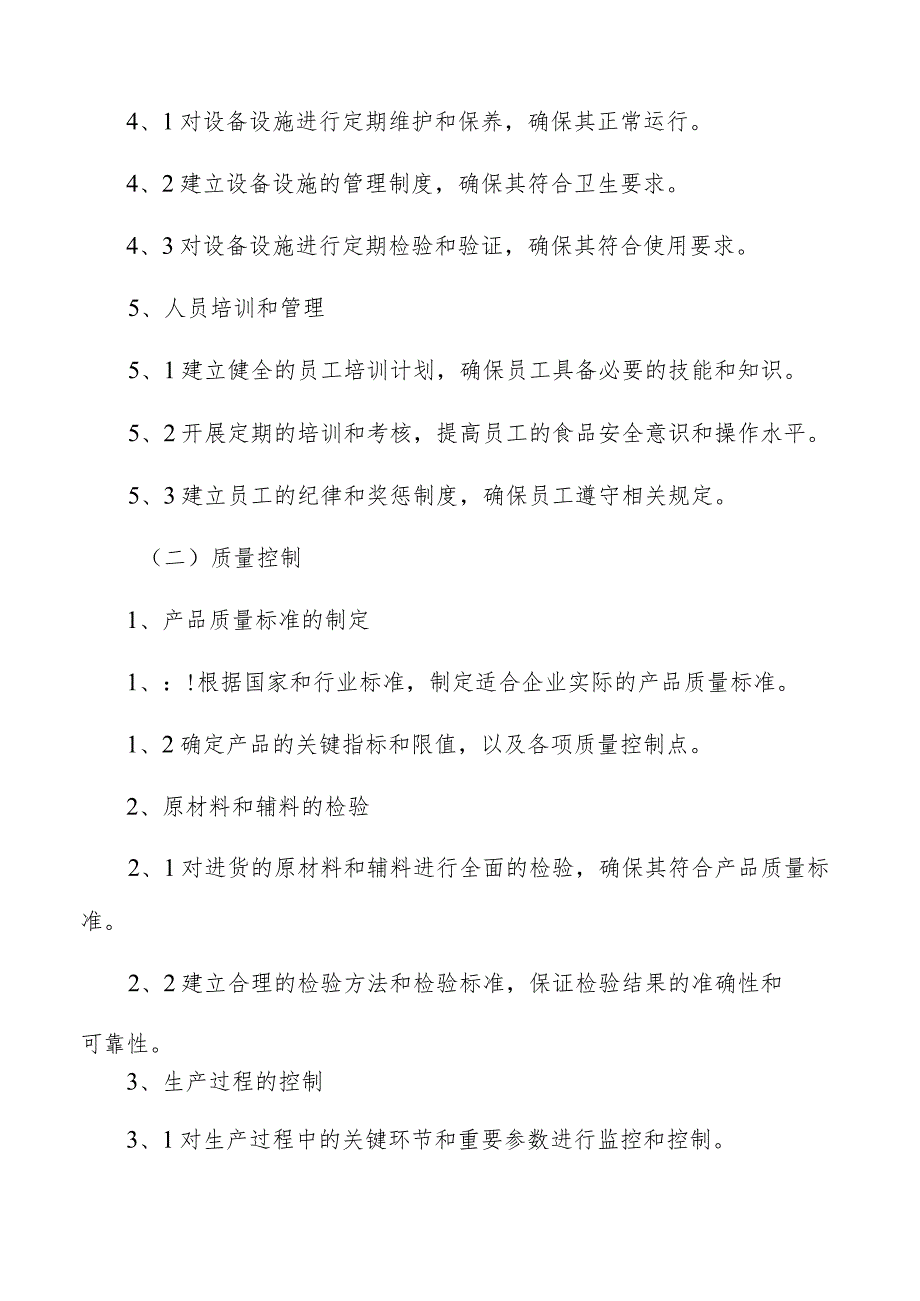 4、1对设备设施进行定期维护和保养，确保其正常运行。
4、2建立设备设施的管理制度，确保其符合卫生要求。
4、3对设备设施进行定期检验和验证，确保其符合使用要求。
5、人员培训和管理
5、1建立健全的员工培训计划，确保员工具备必要的技能和知识。
5、2开展定期的培训和考核，提高员工的食品安全意识和操作水平。
5、3建立员工的纪律和奖惩制度，确保员工遵守相关规定。
（二）质量控制
1、产品质量标准的制定
1、：!根据国家和行业标准，制定适合企业实际的产品质量标准。
1、2确定产品的关键指标和限值，以及各项质量控制点。
2、原材料和辅料的检验
2、1对进货的原材料和辅料进行全面的检验，确保其符合产品质量标
准。
2、2建立合理的检验方法和检验标准，保证检验结果的准确性和
可靠性。
3、生产过程的控制
3、1对生产过程中的关键环节和重要参数进行监控和控制。